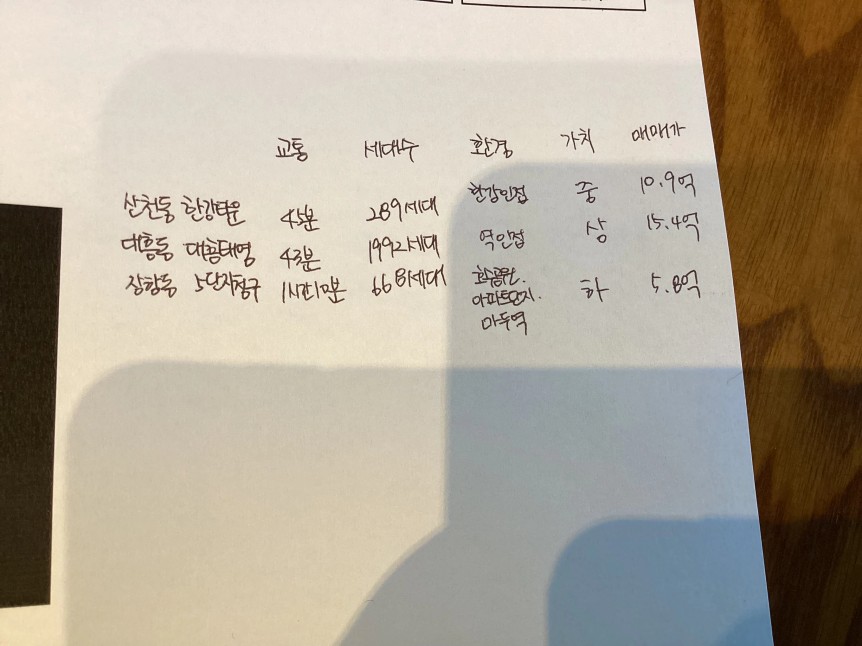 교통 세대수 환경 가치 매매가
산천동 한강타운 45분 289세대 한강인접 중 10.9억
대흥동 대흥태영 43분 1992세대 역인접 상 15.4억
장항동 5단지청구 1시간1분 668세대 호수공원. 하 5.8억
아파트단지.
마두역